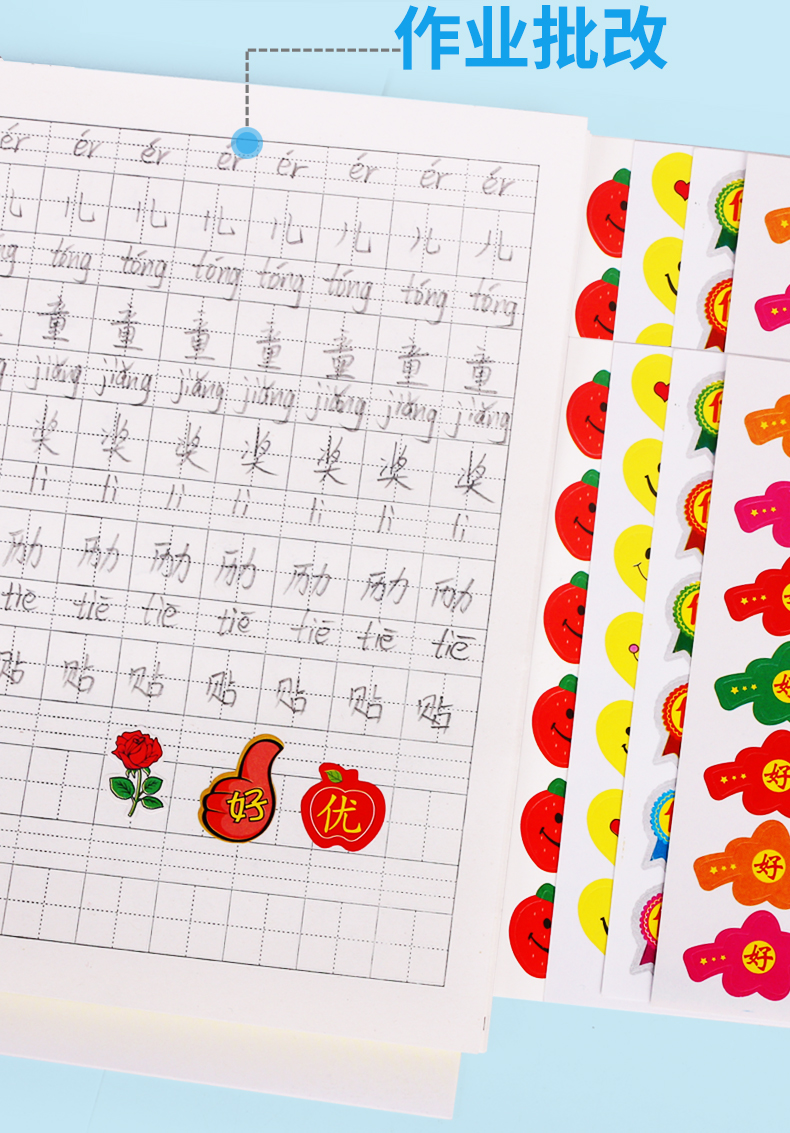 作业批改
ér ér ér ér ér ér ér ér
儿 儿 儿 儿 儿 儿 儿 儿
tóng tóng tóng tóng tóng tóng tóng
童 童 童 童 童 童 童
jiǎng jiǎng jiǎng jiǎng jiǎng jiǎng jiǎng
奖 奖 奖 奖 奖 奖 奖
lì lì lì lì lì lì lì
励 励 励 励 励 励 励
tiē tiē tiē tiē tiē tiē tiē
贴 贴 贴 贴 贴 贴 贴
好 优
好
好
好
好